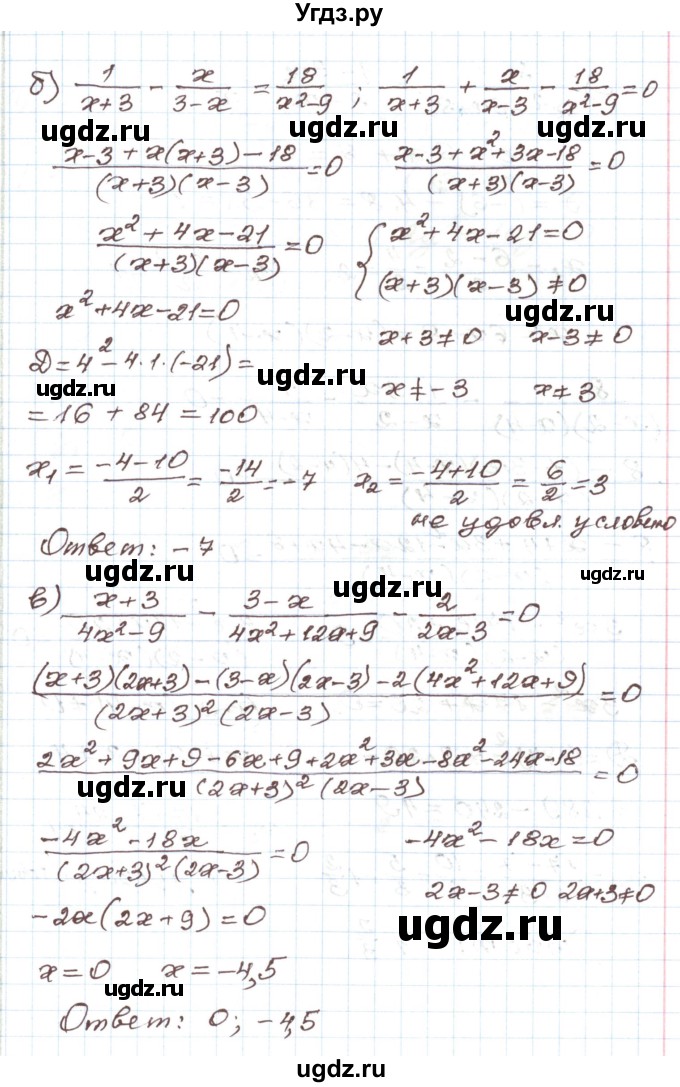 Угдз.ру
б) 1/(x+3) - x/(3-x) = 18/(x²-9) ; 1/(x+3) + x/(x-3) - 18/(x²-9) = 0
ugdz.ru ugdz.ru
(x-3+x(x+3)-18)/((x+3)(x-3)) = 0 (x-3+x²+3x-18)/((x+3)(x-3)) = 0
(x²+4x-21)/((x+3)(x-3)) = 0 { x²+4x-21=0
(x+3)(x-3) ≠ 0
ugdz.ru
x²+4x-21=0
x+3≠0 x-3≠0
Д=4²-4·1·(-21)=
ugdz.ru ugdz.ru
x≠-3 x≠3
=16+84=100
x₁ = (-4-10)/2 = -14/2 = -7 x₂ = (-4+10)/2 = 6/2 = 3
не удовл. условию
Ответ: -7
ugdz.ru ugdz.ru
в) (x+3)/(4x²-9) - (3-x)/(4x²+12x+9) - 2/(2x-3) = 0
ugdz.ru
((x+3)(2x+3)-(3-x)(2x-3)-2(4x²+12x+9))/((2x+3)²(2x-3)) = 0
(2x²+9x+9-6x+9+2x²+3x-8x²-24x-18)/((2x+3)²(2x-3)) = 0
ugdz.ru
(-4x²-18x)/((2x+3)²(2x-3)) = 0 -4x²-18x=0
2x-3≠0 2x+3≠0
-2x(2x+9)=0
ugdz.ru
x=0 x=-4,5
ugdz.ru
Ответ: 0; -4,5
ugdz.ru